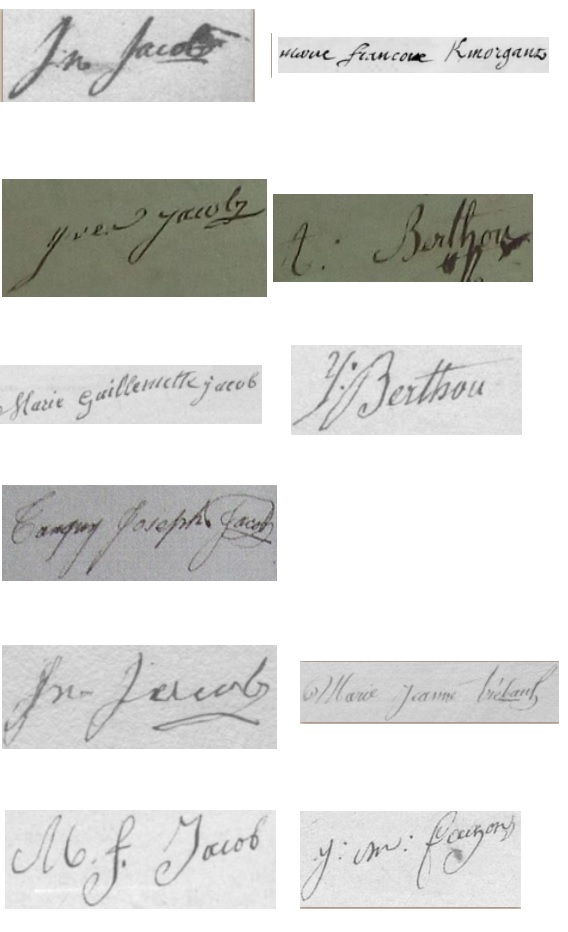 Jn Jacob
marie francoise Kmorgant
yves jacob
A: Berthou
Marie guillemette jacob
Y: Berthou
Tanguy Joseph Jacob
Jn Jacob
Marie Jeanne
M. f. Jacob
y: m: